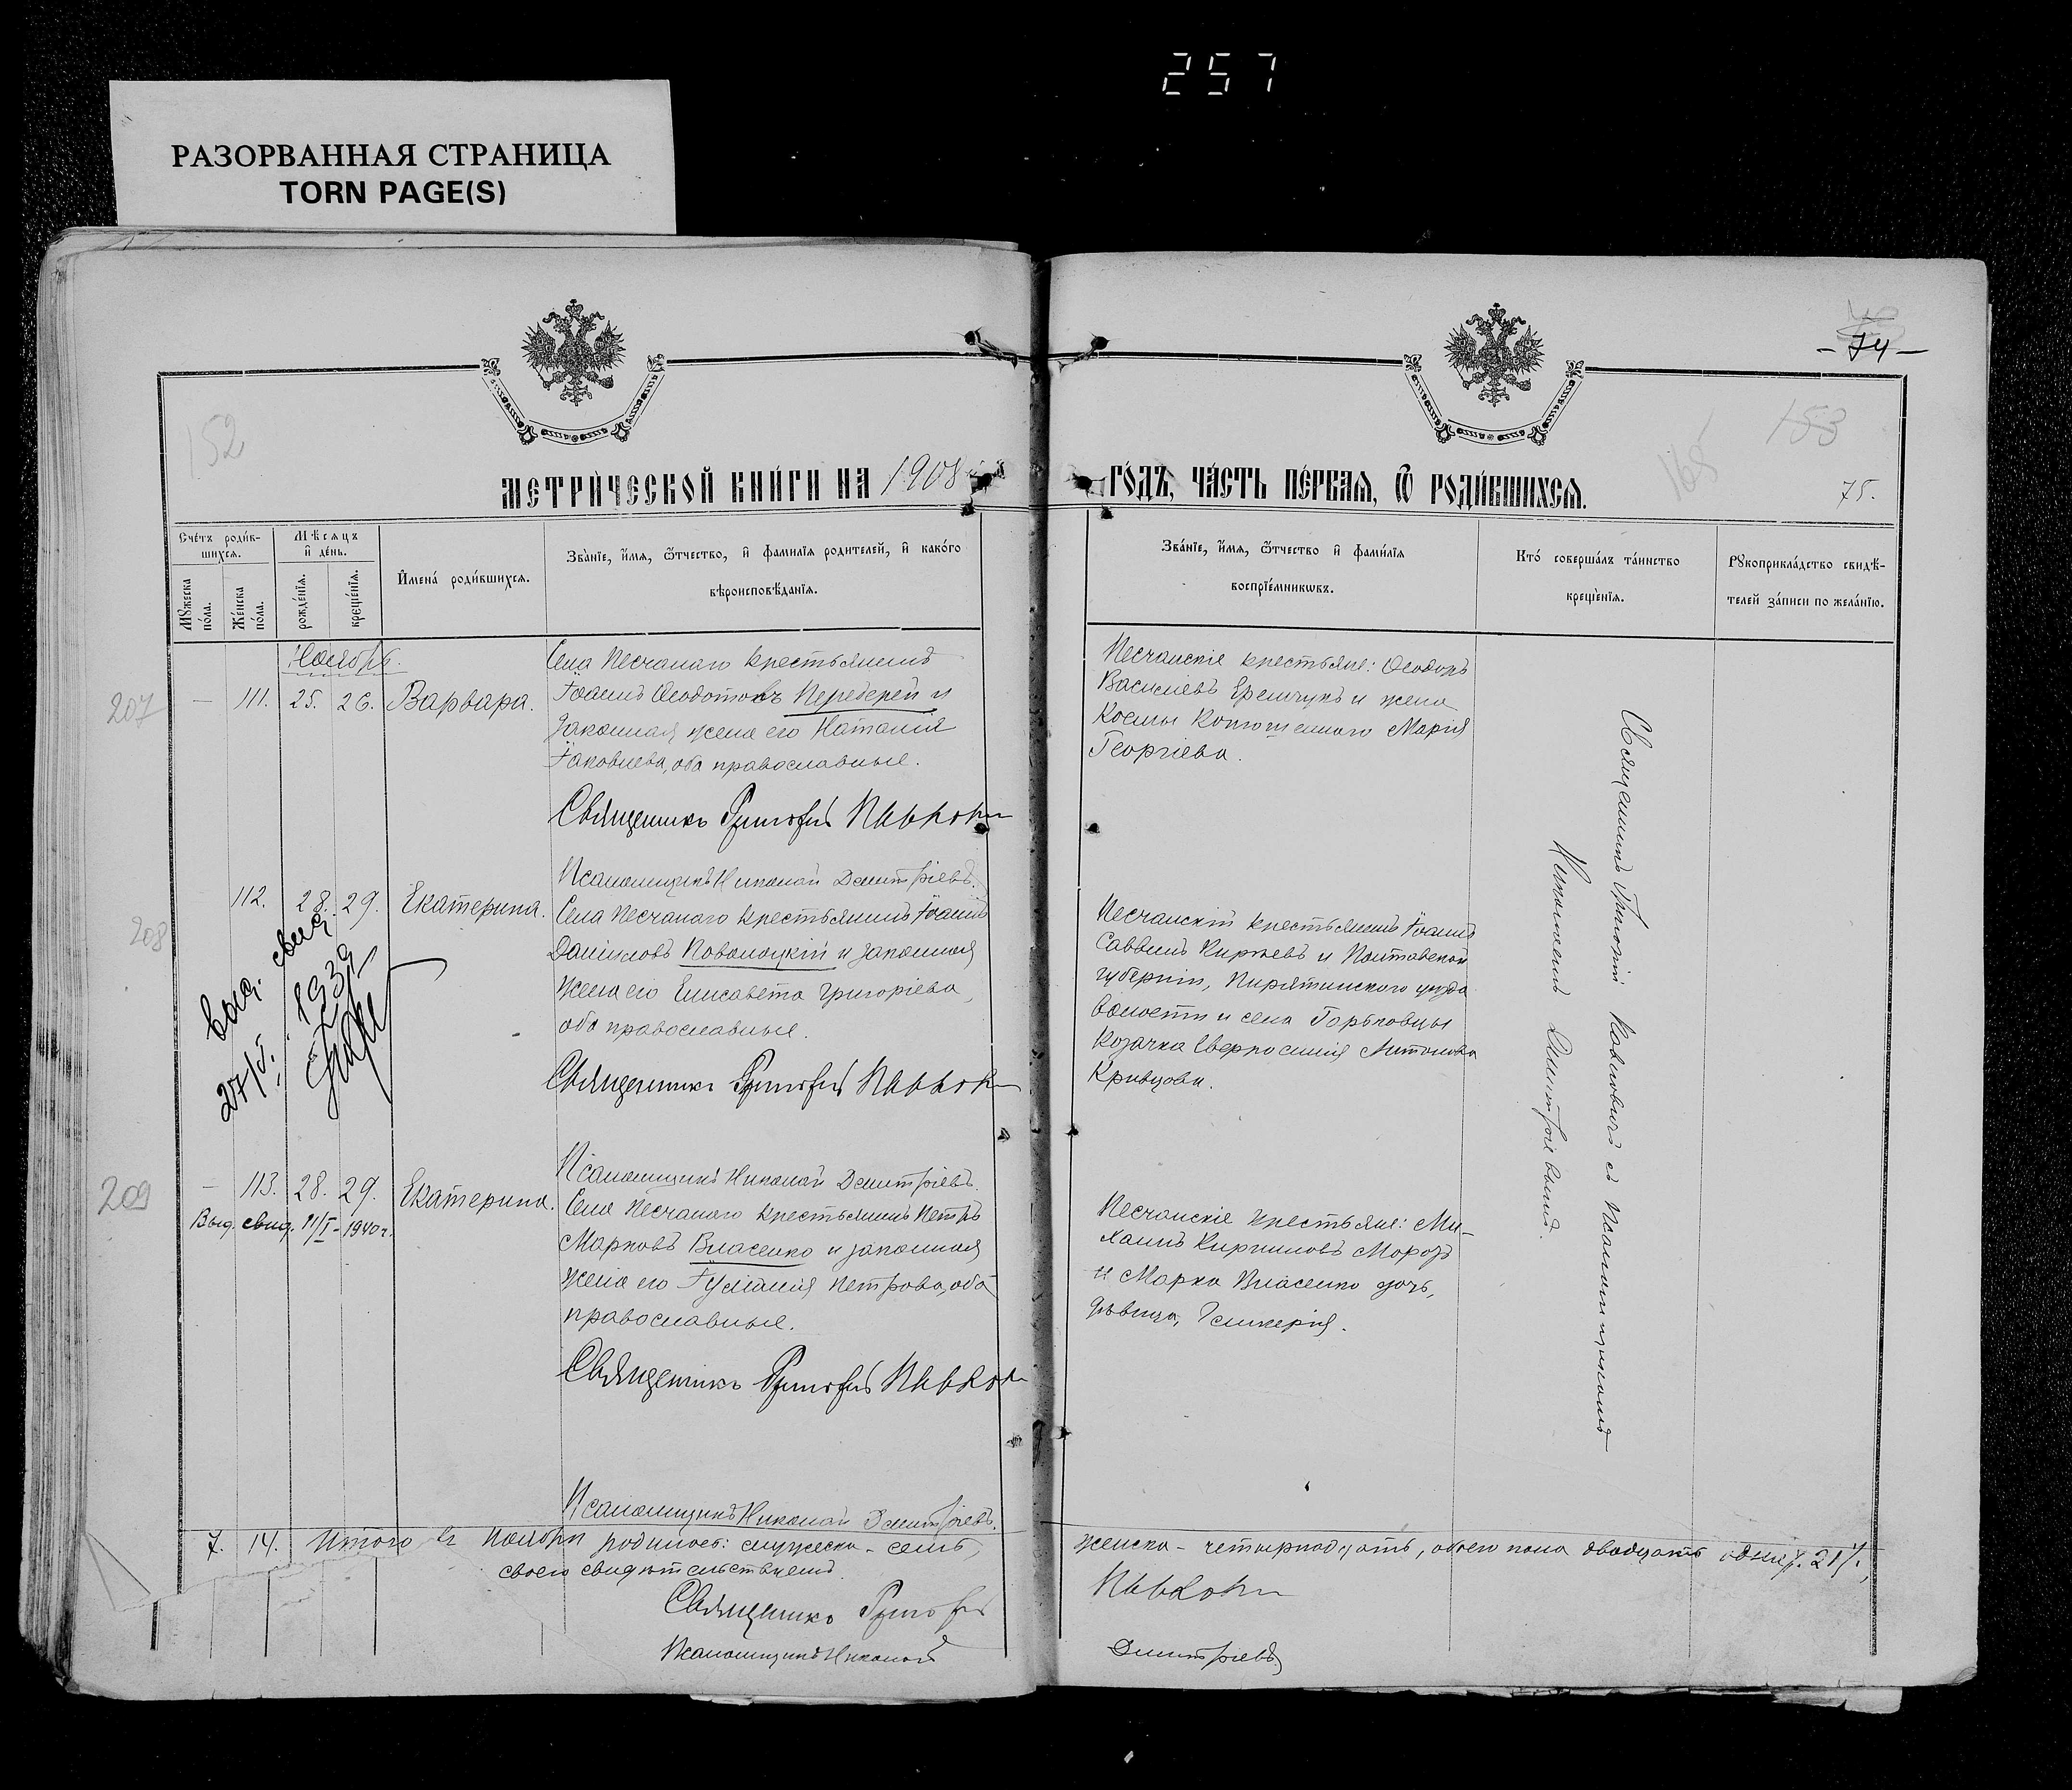 257
РАЗОРВАННАЯ СТРАНИЦА
TORN PAGE(S)
152
МЕТРИЧЕСКОЙ КНИГИ НА 1908
Счетъ родив-
шихся.
Мужеска пола.
Женска пола.
Мѣсяцъ и день.
рожденія.
крещенія.
Имена родившихся.
Званіе, имя, отчество, и фамилія родителей, и какого
вѣроисповѣданія.
Ноябрь.
207
— 111. 25. 26. Варвара.
Села Песчанаго крестьянинъ
Іоаннъ Ѳеодотовъ Передерей и
законная жена его Наталія
Іаковлева, оба православные.
Священникъ Григорій
Псаломщикъ Николай Димитріевъ.
208
112. 28. 29. Екатерина.
Села Песчанаго крестьянинъ Іоаннъ
Даниловъ Поволоцкій и законная
жена его Елисавета Григоріева,
оба православные.
Выд. свид.
27/I. 1939
Священникъ Григорій
Псаломщикъ Николай Димитріевъ.
209
— 113. 28. 29. Екатерина.
Выд. свид. 11/I - 1940 г.
Села Песчаного крестьянинъ Петръ
Марковъ Власенко и законная
жена его Іуліанія Петрова, оба
православные.
Священникъ Григорій
Псаломщикъ Николай Димитріевъ.
7. 14. Итого въ Ноябрѣ родилось: мужеска - семь,
своего свидѣтельствуемъ
Священникъ Григорій
Псаломщикъ Николай
- 74 -
153
165
75.
ГОДЪ, ЧАСТЬ ПЕРВАЯ, Ѡ РОДИВШИХСЯ.
Званіе, имя, отчество и фамилія
воспріемниковъ.
Кто совершалъ таинство
крещенія.
Рукоприкладство свидѣ-
телей записи по желанію.
Песчанскіе крестьяне: Ѳеодоръ
Василіевъ Еремчукъ и жена
Космы Мария
Георгіева.
Песчанскій крестьянинъ Іоаннъ
Саввинъ и Полтавской
губерніи, Пирятинскаго уѣзда
волости и села
Козачка Евфросинія Антонова
Кривцова.
Песчанскіе крестьяне: Ми-
хаилъ Кирилловъ Морозъ
и Марка Власенко дочь,
дѣвица, Гликерія.
Священникъ Григорій съ Псаломщикомъ
Николаемъ Димитріевымъ.
женска - четырнадцать, обоего пола двадцать одинъ. 21.
Димитріевъ